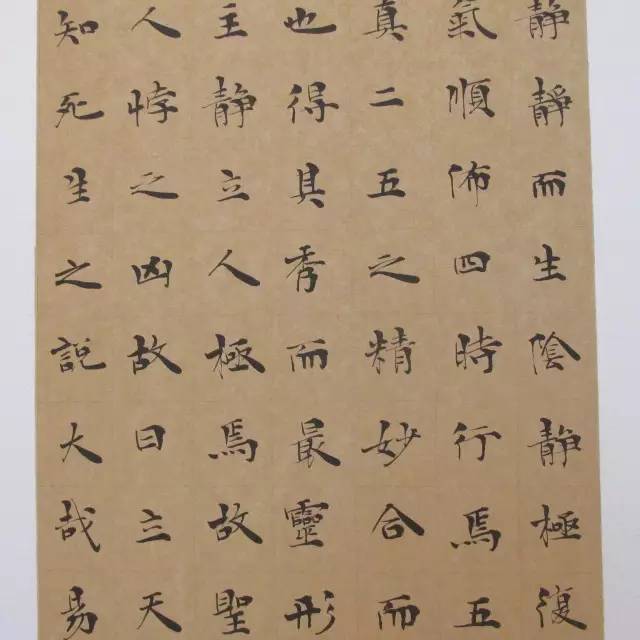 静靜而生陰静極復
氣順佈四時行焉五
真二五之精妙合而
也得其秀而最靈形
主静立人極焉故聖
人悖之凶故曰立天
知死生之説大哉易